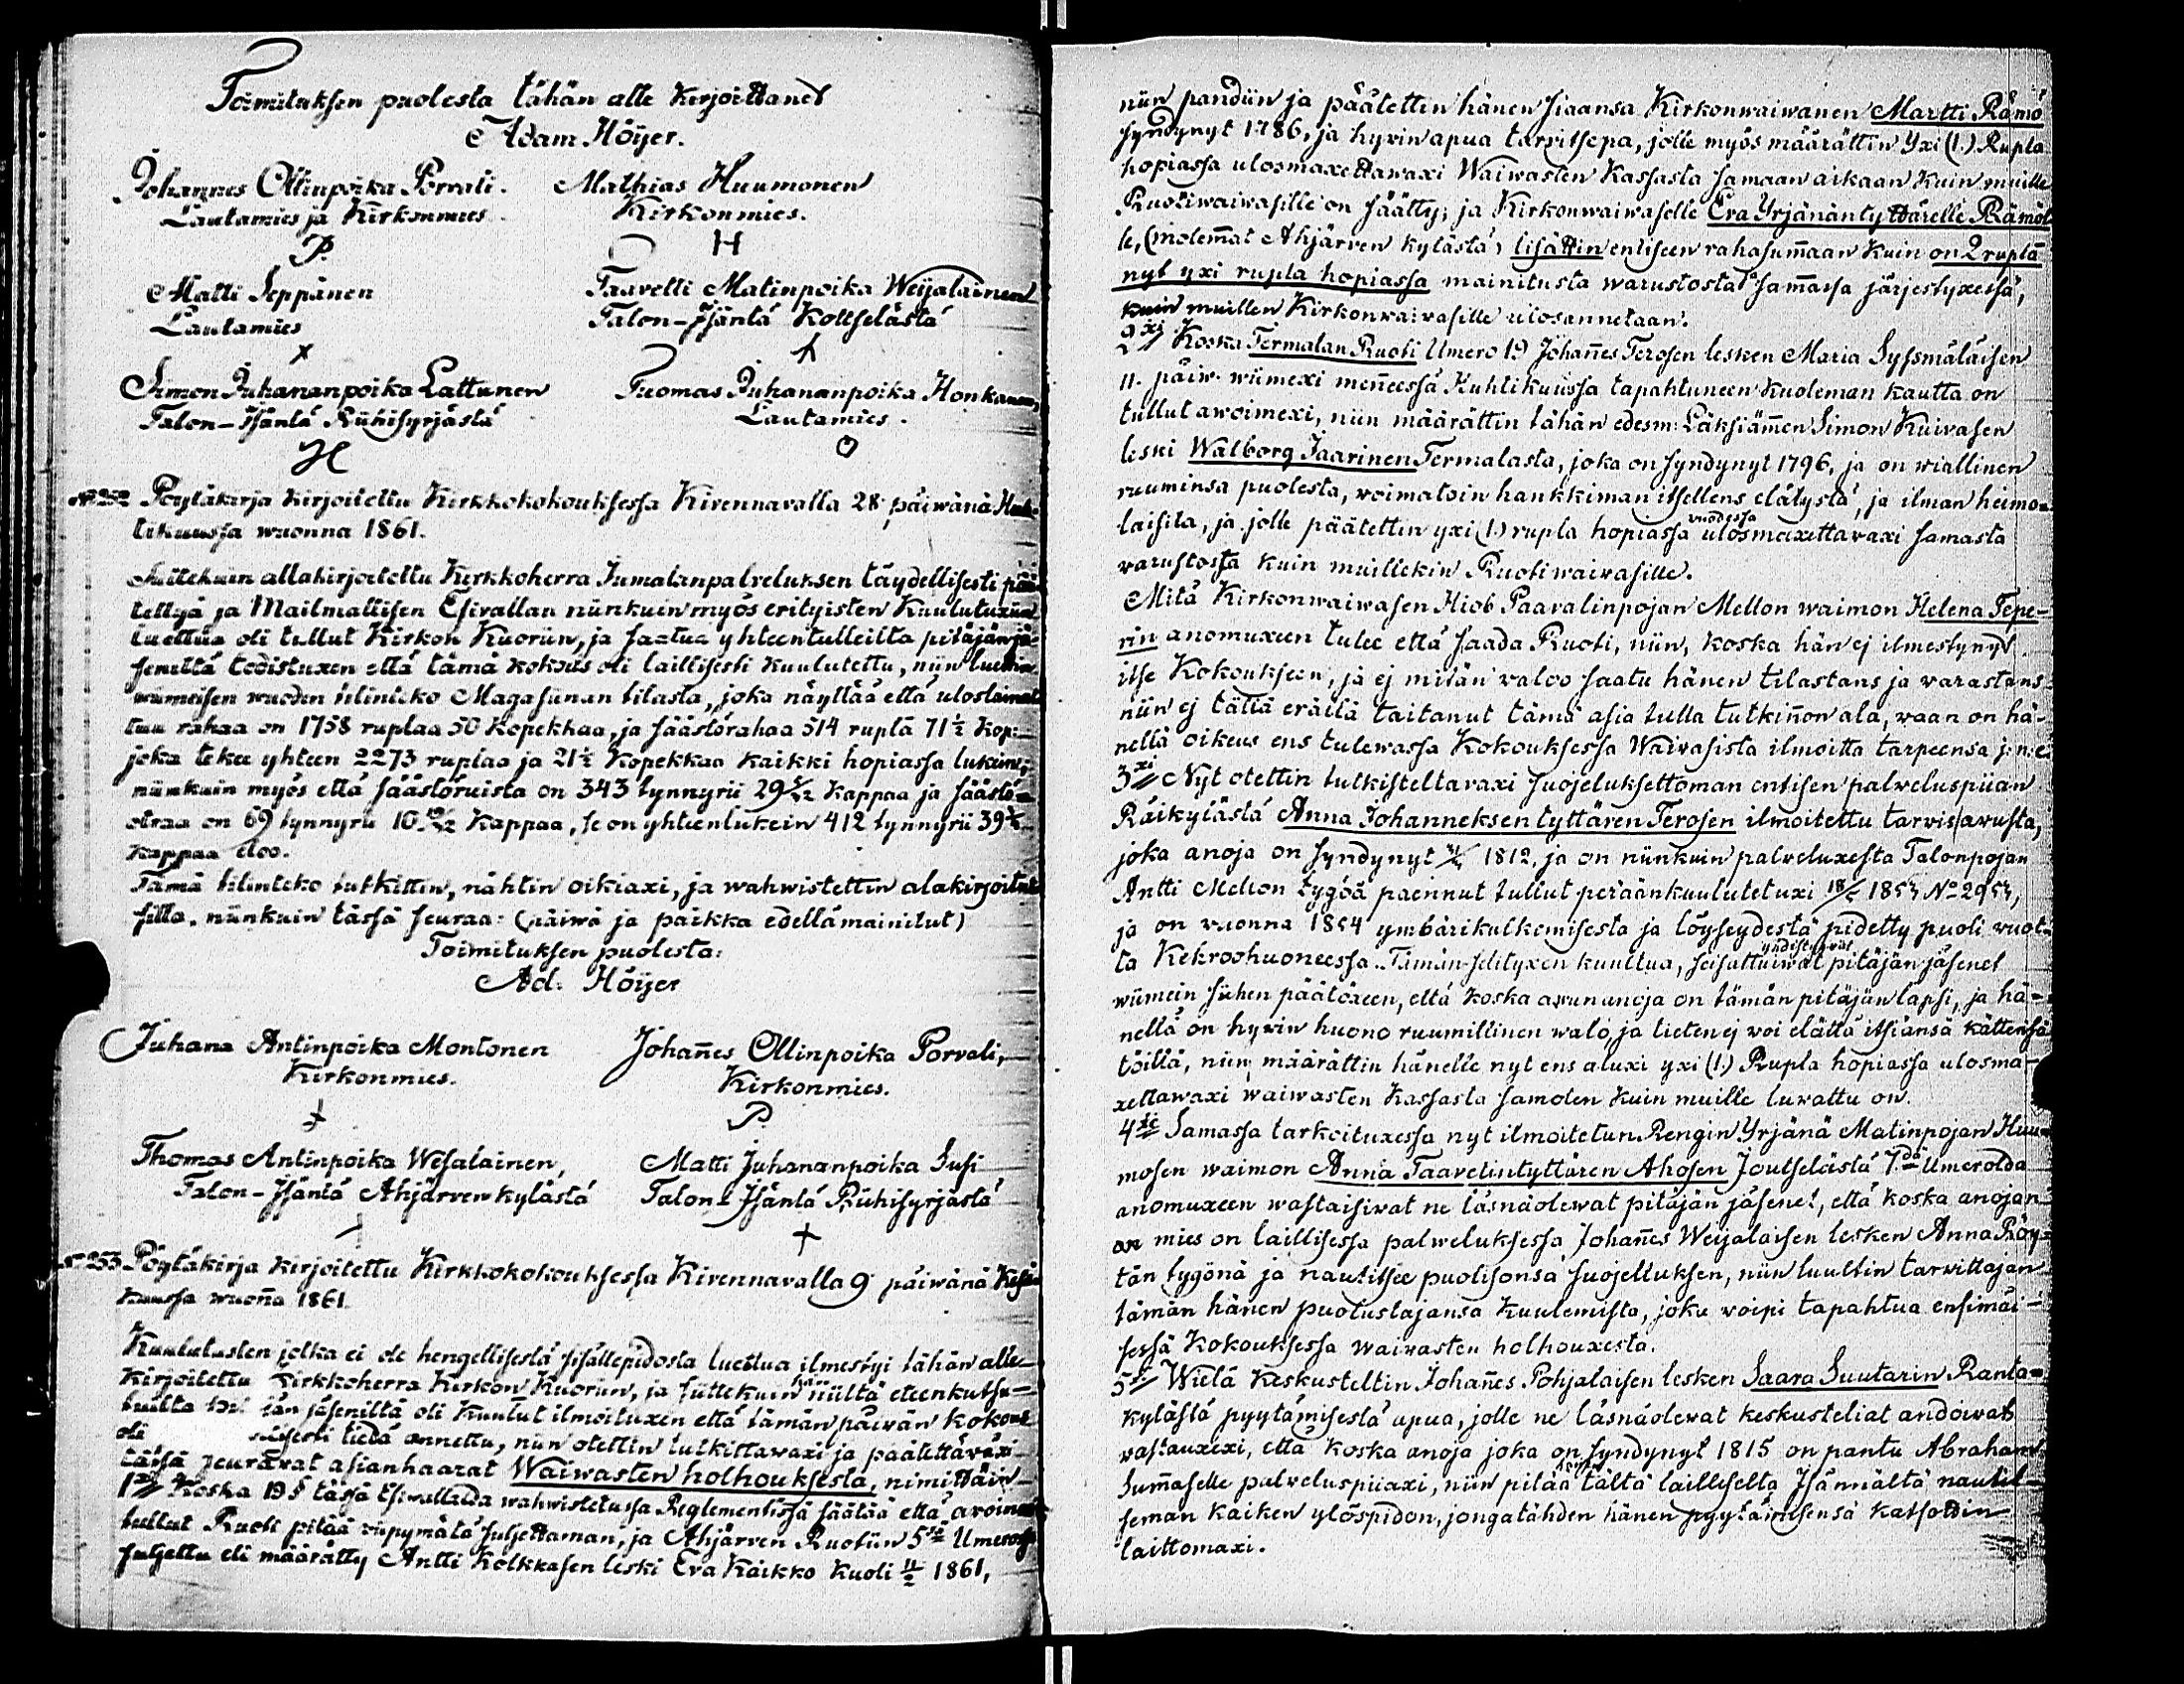 Toimituksen puolesta tähän alle kirjoittanet
Adam Höijer.
Johannes Ollinpoika Porvali. Mathias Huumonen
Lautamies ja Kirkonmies. Kirkonmies.
P. H
Matti Seppänen Taavetti Matinpoika Weijalainen
Lautamies Talon-Isäntä Kottselästä
Simon Juhananpoika Lattunen Tuomas Juhananpoika Honkanen,
Talon-Isäntä Riihisyrjästä Lautamies.
No 252 Pöytäkirja kirjoitettu Kirkkokokouksessa Kivennavalla 28 päiwänä Huh-
tikuussa wuonna 1861.
Sittekuin allakirjoitettu Kirkkoherra Jumalanpalveluksen täydellisesti pää-
tettyä ja Mailmallisen Esivallan niinkuin myös erityisten Kuulutuxia
luettua oli tullut Kirkon Kuoriin, ja saatua yhteentulleilta pitäjänjä-
seniltä todistuxen että tämä kokous oli laillisesti kuulutettu, niin luettiin
wiimeisen wuoden tilinteko Magasiinan tilasta, joka näyttää että uloslainat-
tuu rahaa on 1758 ruplaa 50 Kopekkaa, ja säästörahaa 514 ruplä 71½ Kop:
joka tekee yhteen 2273 ruplaa ja 21½ Kopekkaa kaikki hopiassa lukein;
niinkuin myös että säästöruista on 343 tynnyrii 29 kappaa ja säästö-
otraa on 69 tynnyrii 10 Kappaa, se on yhteenlukein 412 tynnyrii 39
Kappaa eloo.
Tämä tilinteko tutkittiin, nähtin oikiaxi, ja wahwistettin alakirjoituk-
silla, niinkuin tässä seuraa: (päiwä ja paikka edellämainitut)
Toimituksen puolesta:
Ad. Höijer
Juhana Antinpoika Montonen Johañes Ollinpoika Porvali,
Kirkonmies. Kirkonmies.
P.
Thomas Antinpoika Wesalainen, Matti Juhananpoika Susi
Talon-Isäntä Ahjärven kylästä Talon-Isäntä Riihisyrjästä
No 253 Pöytäkirja kirjoitettu Kirkkokokouksessa Kivennavalla 9 päiwänä Kesä-
kuussa wuoña 1861.
Kuulutusten jotka ei ole hengellisestä sisällepidosta luettua ilmestyi tähän alle-
kirjoitettu Kirkkoherra Kirkon Kuoriin, ja siittekuin hän niiltä eteenkutsu-
tuilta jäseniltä oli kuulut ilmoituxen että tämän päiwän kokous
oli tietä annettu, niin otettin tutkittawaxi ja päätettäväxi
tässä seuravat asianhaarat Waiwasten holhouksesta, nimittäin
1xi Koska 19 § tässä Esivallalda wahwistetussa Reglementissä säätää että avoinna
tullut Ruoti pitää viipymätä suljettaman, ja Ahjärven Ruotiin 5tä Umerossa
suljettu eli määrätty Antti Kolkkasen leski Eva Kaikko Kuoli 11/2 1861,
niin pandiin ja päätettin hänen siaansa Kirkonwaiwanen Martti Rämö
syndynyt 1786, ja hyvin apua tarvitsepa, jolle myös määrättin Yxi (1.) Rupla
hopiassa ulosmaxettawaxi Waiwasten Kassasta samaan aikaan kuin muille
Ruotiwaiwasille on säätty; ja Kirkonwaiwaselle Eva Yrjänäntyttärelle Rämöl-
le, (molem̃at Ahjärven kylästä) lisättin entiseen rahasum̃aan kuin on 2 ruplä
nyt yxi rupla hopiassa mainitusta warustosta sam̃assa järjestyxessä,
kuin muillen Kirkonwaiwasille ulosannetaan.
2xi Koska Termalan Ruoti Umero 19 Johañes Terosen lesken Maria Sysmäläisen
11. päiw. wiimexi meñeessä Huhtikuussa tapahtuneen kuoleman kautta on
tullut awoimexi, niin määrättin tähän edesm: Läksiäm̃en Simon Kuivasen
leski Walborg Jaarinen Termalasta, joka on syndynyt 1796, ja on wiallinen
ruuminsa puolesta, voimatoin hankkiman itsellens elätystä, ja ilman heimo-
laisita, ja jolle päätettin yxi (1.) rupla hopiassa vuodessa ulosmaxettavaxi samasta
varustosta kuin muillekin Ruotiwaivasille.
Mitä Kirkonwaiwasen Hiob Paavalinpojan Mellon waimon Helena Tepe-
rin anomuxeen tulee että saada Ruoti, niin, koska hän ej ilmestynyt
itse Kokoukseen, ja ej mitän valoo saatu hänen tilastans ja varastans
niin ej tällä erällä taitanut tämä asia tulla tutkiñon ala, waan on hä-
nellä oikeus ens tulewassa Kokouksessa Waivasista ilmoitta tarpeensa j: n: e:
3xi Nyt otettin tutkisteltavaxi suojeluksettoman entisen palveluspiian
Räikylästä Anna Johanneksen tyttären Terosen ilmoitettu tarvis avusta,
joka anoja on syndynyt 1812, ja on niinkuin palveluxesta Talonpojan
Antti Mellon tygöä paennut tullut peräänkuulutetuxi 1853 No 2953,
ja on vuonna 1854 ymbärikulkemisesta ja löyseydestä pidetty puoli vuot-
ta Kehroohuoneessa. Tämän selityxen kuultua, seisattuiwat yndistyneet pitäjän jäsenet
wiimein siihen päätöxeen, että koska avun anoja on tämän pitäjän lapsi, ja hä-
nellä on hyvin huono ruumillinen walo, ja tieten ej voi elättä itsiänsä kättensä
töillä, niin määrättin hänelle nyt ens aluxi yxi (1.) Rupla hopiassa ulosma-
xettawaxi waiwasten Kassasta samoten kuin muille luvattu on.
4xi Samassa tarkoituxessa nyt ilmoitetun Rengin Yrjänä Matinpojan Huu-
mosen waimon Anna Taavetintyttären Ahosen Joutselästä 7dä Umerolda
anomuxeen wastaisivat ne läsnäolewat pitäjän jäsenet, että koska anojan
mies on laillisessa palweluksessa Johañes Weijalaisen lesken Anna Röy-
tän tygönä ja nautitsee puolisonsa suojelluksen, niin luultin tarvittajan
tämän hänen puolustajansa kuulemista, joka voipi tapahtua ensimäi-
sessä Kokouksessa waivasten holhouxesta.
5xi Wielä keskusteltin Johañes Pohjalaisen lesken Saara Suutarin Ranta-
kylästä pyytämisestä apua, jolle ne läsnäolevat keskusteliat andoivat
vastauxexi, että koska anoja joka on syndynyt 1815 on pantu Abraham
Sum̃aselle palveluspiiaxi, niin pitää tältä lailliselta Isännältä nautit-
seman kaiken ylöspidon, jongatähden hänen pyytämisensä katsottin
laittomaxi.